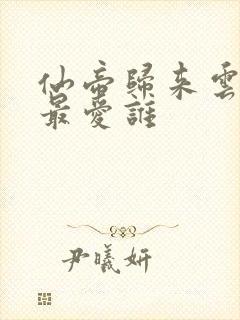 仙帝歸來雲
最愛誰
尹曦妍